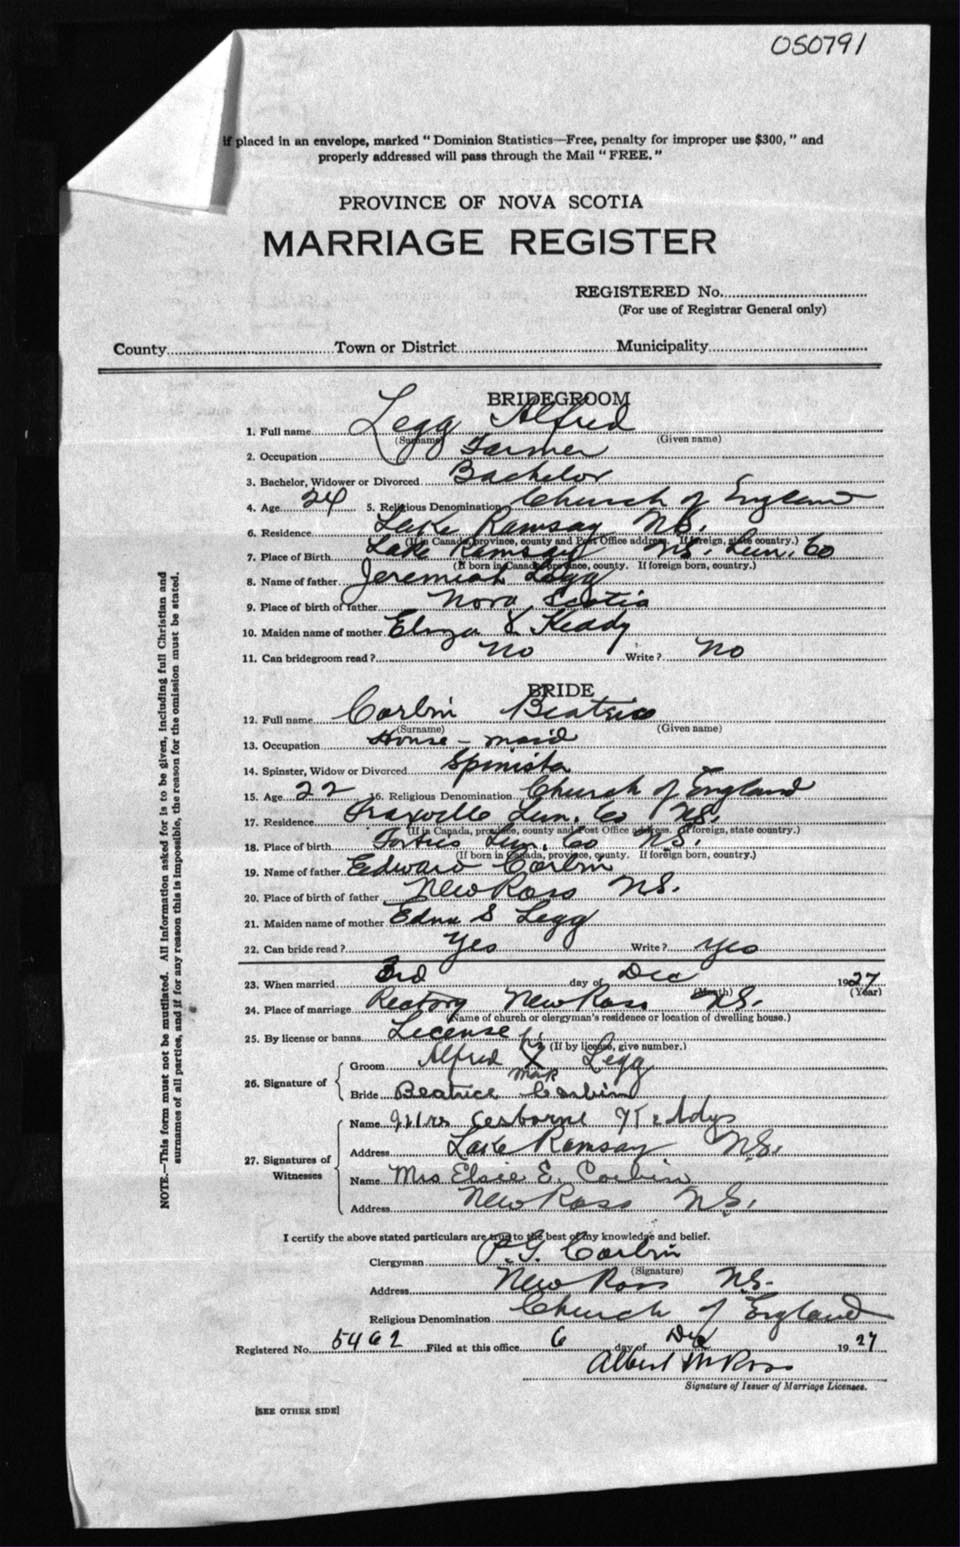 050791
If placed in an envelope, marked "Dominion Statistics—Free, penalty for improper use $300," and
properly addressed will pass through the Mail "FREE."
PROVINCE OF NOVA SCOTIA
MARRIAGE REGISTER
REGISTERED No.
(For use of Registrar General only)
County Town or District Municipality
BRIDEGROOM
1. Full name Legg Alfred
(Surname) (Given name)
2. Occupation Farmer
3. Bachelor, Widower or Divorced Bachelor
4. Age 24 5. Religious Denomination Church of England
6. Residence Lake Ramsay N.S.
(If in Canada, province, county and Post Office address. If foreign, state country.)
7. Place of Birth Lake Ramsay N.S. Lun. Co
(If born in Canada, province, county. If foreign born, country.)
8. Name of father Jeremiah Legg
9. Place of birth of father Nova Scotia
10. Maiden name of mother Eliza Keady
11. Can bridegroom read? No Write? No
BRIDE
12. Full name Corbin Beatrice
(Surname) (Given name)
13. Occupation House-maid
14. Spinster, Widow or Divorced Spinster
15. Age 22 16. Religious Denomination Church of England
17. Residence Lun. Co N.S.
(If in Canada, province, county and Post Office address. If foreign, state country.)
18. Place of birth Forties Lun. Co N.S.
(If born in Canada, province, county. If foreign born, country.)
19. Name of father Edward Corbin
20. Place of birth of father New Ross N.S.
21. Maiden name of mother Edna S Legg
22. Can bride read? Yes Write? yes
23. When married 3rd day of Dec 1927
(Month) (Year)
24. Place of marriage Rectory New Ross N.S.
(Name of church or clergyman's residence or location of dwelling house.)
25. By license or banns License
(If by license, give number.)
26. Signature of
Groom Alfred his X mark Legg
Bride Beatrice Corbin
27. Signatures of Witnesses
Name Mrs Osborne Keddy
Address Lake Ramsay N.S.
Name Mrs Elsie E. Corbin
Address New Ross N.S.
I certify the above stated particulars are true to the best of my knowledge and belief.
Clergyman P.G. Corbin
(Signature)
Address New Ross N.S.
Religious Denomination Church of England
Registered No. 5462 Filed at this office 6 day of Dec 1927
Albert M Ross
Signature of Issuer of Marriage Licenses.
[SEE OTHER SIDE]
NOTE.—This form must not be mutilated. All information asked for is to be given, including full Christian and
surnames of all parties, and if for any reason this is impossible, the reason for the omission must be stated.